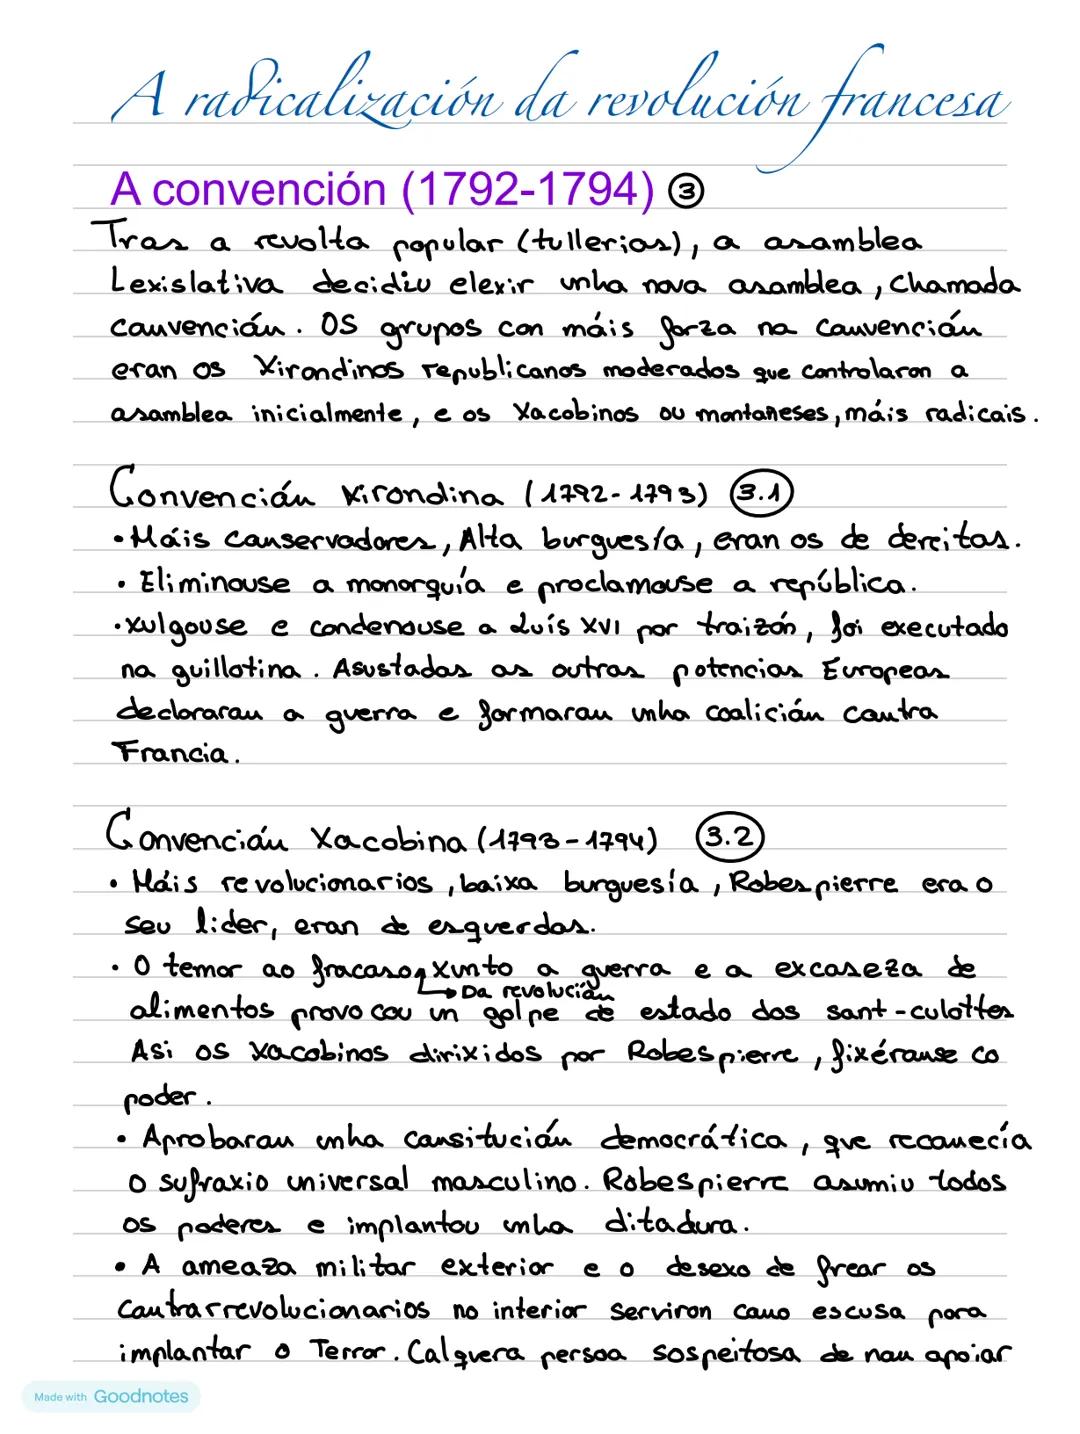 A radicalización da revolución francesa
A convención (1792-1794) ③
Tras a revolta popular (tullerias), a asamblea
Lexislativa decidiu elexir unha nova asamblea, chamada
convención. OS grupos con máis forza na convención
eran os Xirondinos republicanos moderados que controlaron a
asamblea inicialmente, e os Xacobinos ou montañeses, máis radicais.
Convención xirondina (1792-1793) 3.1
• Máis conservadores, Alta burguesía, eran os de dereitas.
• Eliminouse a monarquía e proclamouse a república.
• xulgouse e condenouse a Luís XVI por traizón, foi executado
na guillotina. Asustadas as outras potencias Europeas
declararan a guerra e formaran unha coalición contra
Francia.
Convención Xacobina (1793-1794) 3.2
• Máis revolucionarios, baixa burguesía, Robespierre era o
seu lider, eran de esquerdas.
• O temor ao fracaso, xunto a guerra e a excaseza de
↳ Da revolución
alimentos provocou un golpe de estado dos sant-culottes
Asi os xacobinos dirixidos por Robespierre, fixéronse co
poder.
• Aprobaran unha cansitución democrática, que recoñecía
o sufraxio universal masculino. Robespierre asumiu todos
os poderes e implantou unha ditadura.
• A ameaza militar exterior e o desexo de frear os
contrarrevolucionarios no interior serviron como escusa para
implantar o Terror. Calquera persoa sospeitosa de non apoiar
Made with Goodnotes